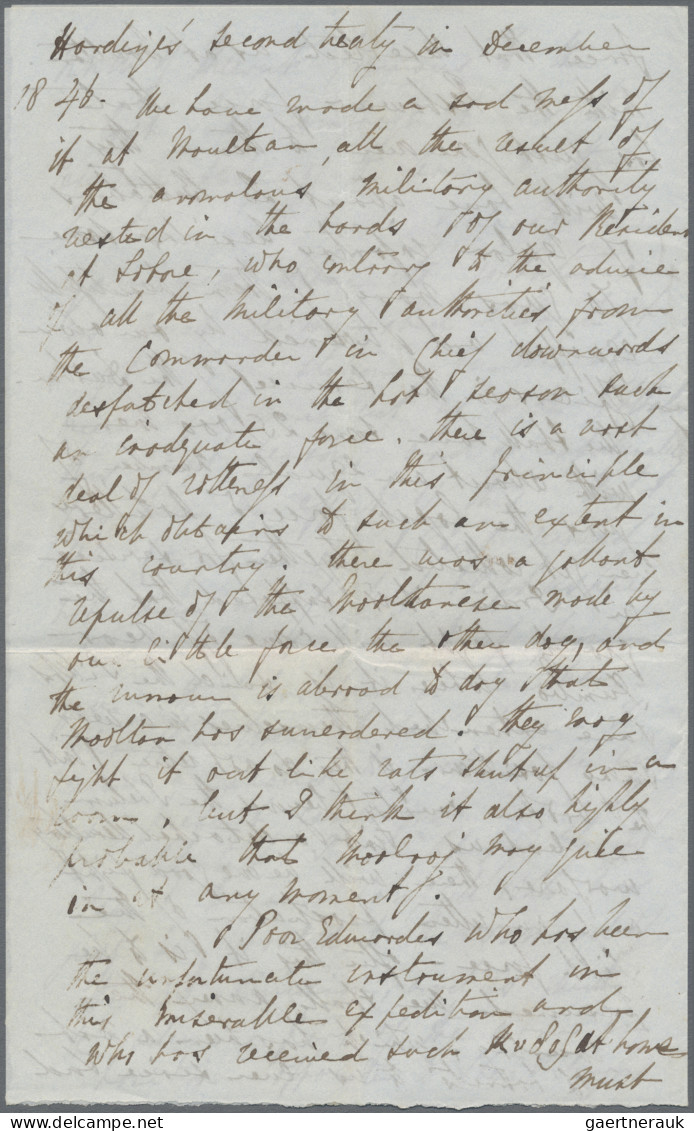 Hardinge's second treaty in December
1846. We have made a sad mess of
it at Moultan, all the result of
the anomalous military authority
vested in the hands of our Resident
at Lahore, who contrary to the advice
of all the Military authorities from
the Commander in Chief downwards
despatched in the hot season such
an inadequate force. there is a vast
deal of rottenness in this principle
which obtains to such an extent in
this country. there was a gallant
repulse of the Mooltanese made by
our little force the other day, and
the rumour is abroad to day that
Mooltan has surrendered. They may
fight it out like rats shut up in a
room, but I think it also highly
probable that Moolraj may give
in at any moment.
Poor Edwardes who has been
the unfortunate instrument in
this miserable expedition and
who has received such Kudos at home
must
gaertnerauk